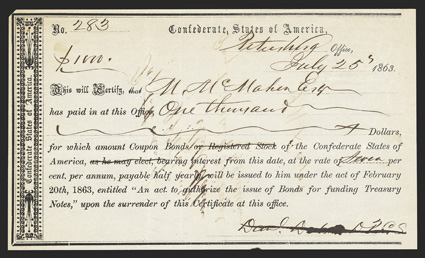 No. 283
Confederate States of America,
Petersburg Office,
$1000. July 25 1863.
This will Certify, that M. McMahon Esq
has paid in at this Office, One thousand
Dollars,
for which amount Coupon Bonds or Registered Stock of the Confederate States of
America, as he may elect, bearing interest from this date, at the rate of Seven per
cent. per annum, payable half yearly will be issued to him under the act of February
20th, 1863, entitled "An act to authorize the issue of Bonds for funding Treasury
Notes," upon the surrender of this Certificate at this office.
Confederate States of America.